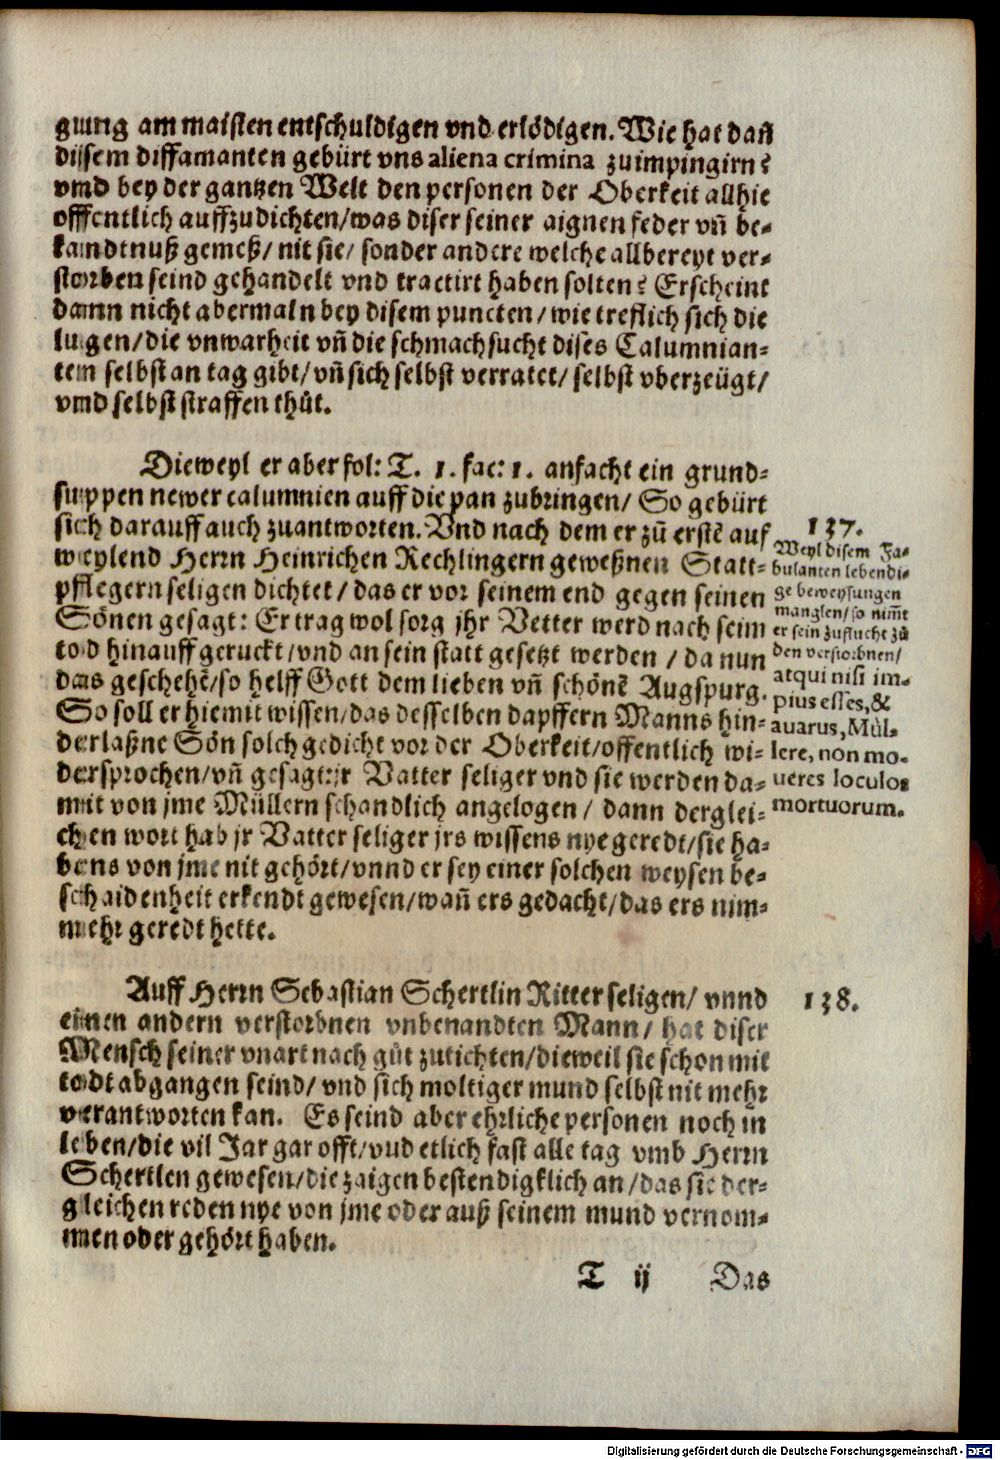 gung am maisten entschuldigen vnd erlödigen. Wie hat dañ
disem diffamanten gebürt vns aliena crimina zuimpingirn?
vnd bey der gantzen Welt den personen der Oberkeit allhie
offentlich auffzudichten/was diser seiner aignen feder vñ be-
kandtnuß gemeß/ nit sie/ sonder andere welche allbereyt ver-
storben seind gehandelt vnd tractirt haben solten? Erscheint
dann nicht abermaln bey disem puncten/ wie treflich sich die
lugen/die vnwarheit vñ die schmachsucht dises Calumnian-
ten selbst an tag gibt/ vñ sich selbst verratet/ selbst vberzeügt/
vnd selbst straffen thůt.
Dieweyl er aber fol: T. 1. fac: 1. anfacht ein grund-
suppen newer calumnien auff die pan zubringen/ So gebürt
sich darauff auch zuantworten. Vnd nach dem er zů erstē auf
weylend Herrn Heinrichen Rechlingern geweßnen Statt-
pflegern seligen dichtet/ das er vor seinem end gegen seinen
Sönen gesagt: Er trag wol sorg jhr Vetter werd nach seim
tod hinauff geruckt/vnd an sein statt gesetzt werden / da nun
das geschehē/so helff Gott dem lieben vñ schönē Augspurg.
So soll er hiemit wissen/das desselben dapffern Manns hin-
derlaßne Sön solch gedicht vor der Oberkeit/offentlich wi-
dersprochen/vñ gesagt:jr Vatter seliger vnd sie werden da-
mit von jme Müllern schandlich angelogen/ dann derglei-
chen wort hab jr Vatter seliger jrs wissens nye geredt/sie ha-
bens von jme nit gehört/vnnd er sey einer solchen weysen be-
schaidenheit erkendt gewesen/wañ ers gedacht/das ers nim-
mehr geredt hette.
137.
Weyl disem Fa-
bulanten lebendi-
ge beweysungen
manglen/so nim̃t
er sein zuflucht zů
den verstorbnen/
atqui nisi im-
pius esses, &
auarus, Mül-
lere, non mo-
ueres loculos
mortuorum.
Auff Herrn Sebastian Schertlin Ritter seligen/ vnnd
einen andern verstorbnen vnbenandten Mann/ hat diser
Mensch seiner vnart nach gůt zutichten/dieweil sie schon mit
todt abgangen seind/ vnd sich moltiger mund selbst nit mehr
verantworten kan. Es seind aber ehrliche personen noch in
leben/die vil Jar gar offt/vud etlich fast alle tag vmb Herrn
Schertlen gewesen/die zaigen bestendigklich an/das sie der-
gleichen reden nye von jme oder auß seinem mund vernom-
men oder gehört haben.
138.
T ij Das
Digitalisierung gefördert durch die Deutsche Forschungsgemeinschaft - DFG